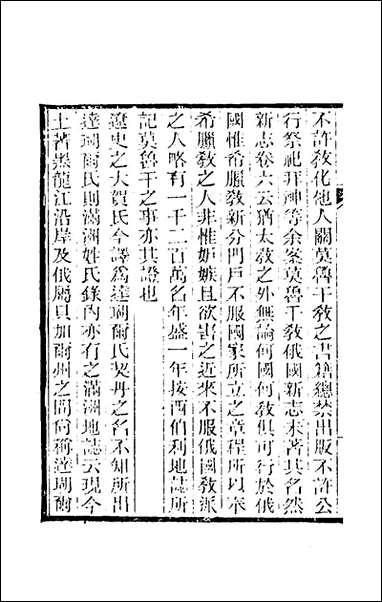 不許敎化他人關莫魯干敎之書籍總禁出版不許公
行祭祀拜神等余案莫魯干敎俄國新志未著其名然
新志卷六云猶太敎之外無論何國何敎俱可行於俄
國惟希臘敎新分門戶不服國家所立之章程所以奉
希臘敎之人非惟妬嫉且欲害之近來不服俄國敎派
之人略有一千二百萬名年盛一年按西伯利地誌所
記莫魯干之事亦其證也
遼史之大賀氏今譯爲達瑚爾氏契丹之名不知所出
達瑚爾氏則滿洲姓氏錄內亦有之滿洲地誌云現今
土著黑龍江沿岸及俄屬貝加爾州之間尙稱達瑚爾